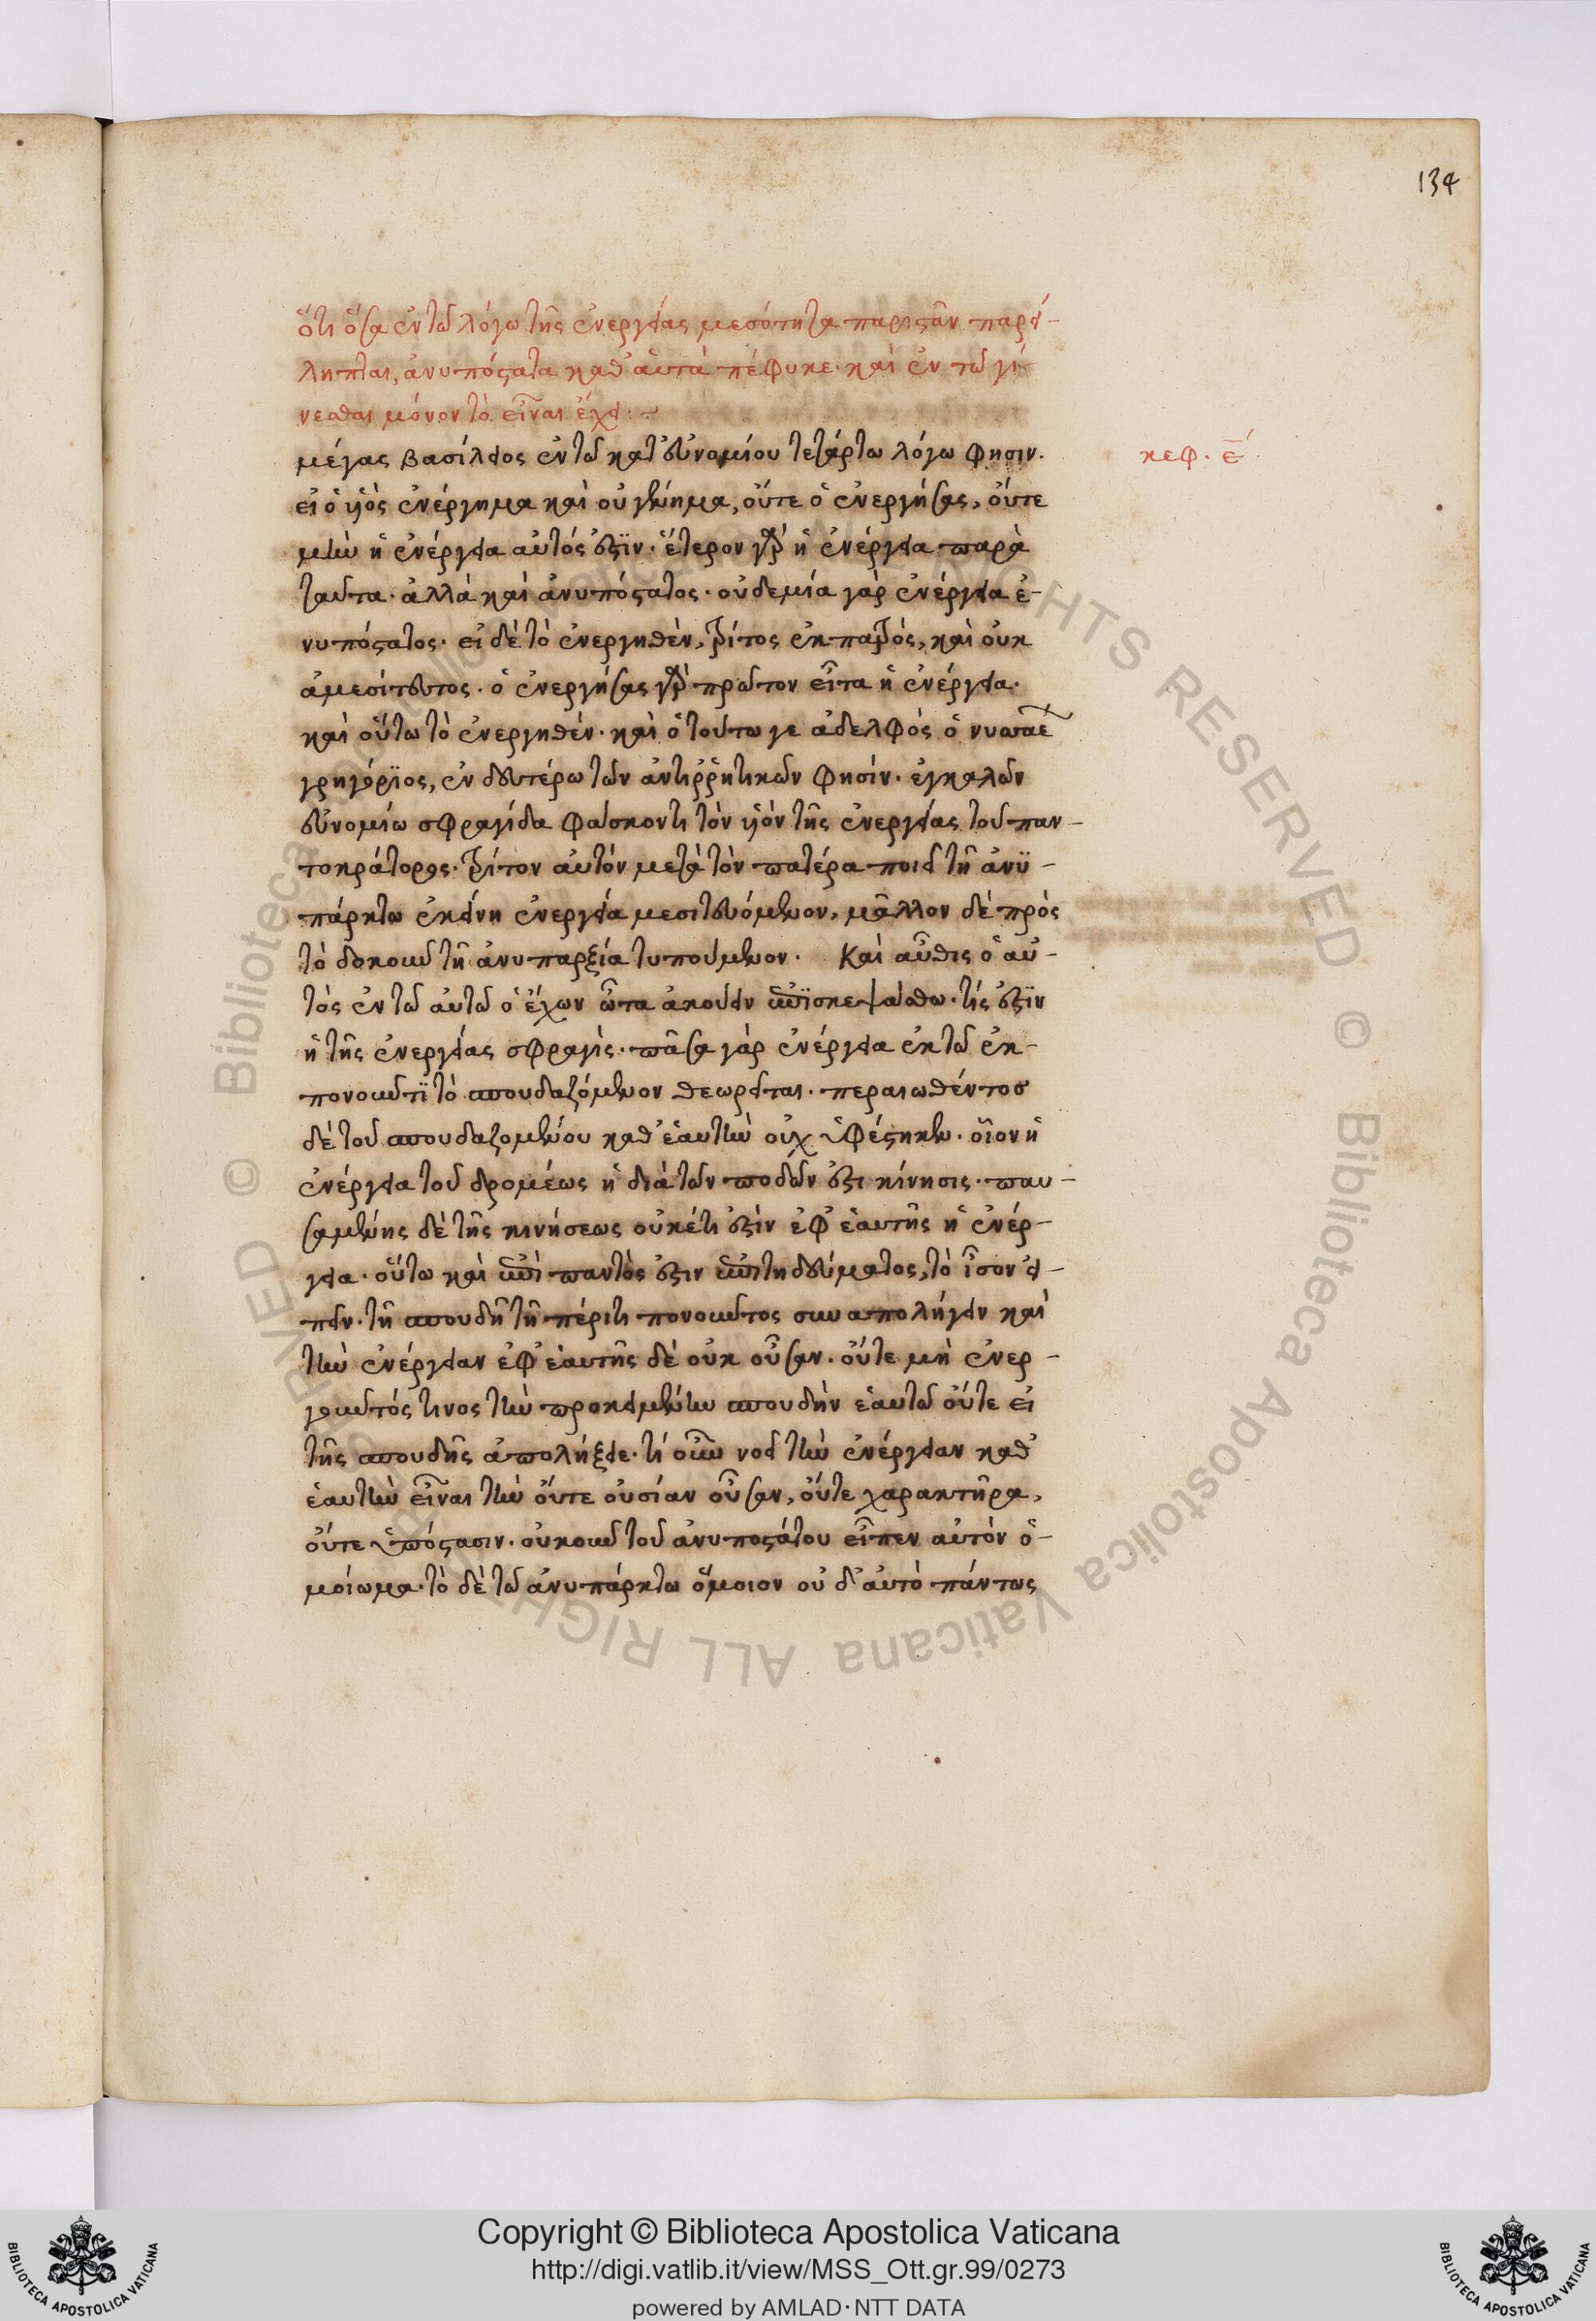 134
ὅτι ὅσα ἐν τῶ λόγω τῆς ἐνεργείας μεσότητα παριστᾶν παρεί-
ληπται, ἀνυπόστατα καθ' αὑτὰ πέφυκε· καὶ ἐν τῶ γί-
νεσθαι μόνον τὸ εἶναι ἔχει:
μέγας βασίλειος ἐν τῶ κατ' εὐνομίου τετάρτω λόγω φησιν·
κεφ. ε
εἰ ὁ υἱὸς ἐνέργημα καὶ οὐ γέννημα, οὔτε ὁ ἐνεργήσας, οὔτε
μὴν ἡ ἐνέργεια αὐτός ἐστϊν· ἕτερον γὰρ ἡ ἐνέργεια παρὰ
ταῦτα· ἀλλὰ καὶ ἀνυπόστατος· οὐδεμία γὰρ ἐνέργεια ἐ-
νυπόστατος· εἰ δὲ τὸ ἐνεργηθὲν, τρίτος ἐκ πατρός, καὶ οὐκ
ἀμεσίτευτος· ὁ ἐνεργήσας γὰρ πρῶτον εἶτα ἡ ἐνέργεια·
καὶ οὕτω τὸ ἐνεργηθέν· καὶ ὁ τούτω γε ἀδελφὸς ὁ νυσαε
γρηγόρϊος, ἐν δευτέρω τῶν ἀντιῤῥητικῶν φησίν· ἐγκαλῶν
εὐνομίω σφραγίδα φάσκοντι τὸν υἱὸν τῆς ἐνεργείας τοῦ παν-
τοκράτορος· τρίτον αὐτὸν μετὰ τὸν πατέρα ποιεῖ τῆ ἀνϋ-
πάρκτω ἐκείνη ἐνεργεία μεσιτευόμενον, μᾶλλον δὲ πρὸς
τὸ δοκοῦν τῆ ἀνυπαρξία τυπούμενον· Καὶ αὖθις ὁ αὐ-
τὸς ἐν τῶ αὐτῶ ὁ ἔχων ὦτα ἀκούειν ἐπϊσκεψάσθω· τίς ἐστϊν
ἡ τῆς ἐνεργείας σφραγίς· πᾶσα γὰρ ἐνέργεια ἐκ τῶ ἐκ-
πονοῦντϊ τὸ σπουδαζόμενον θεωρεῖται· περαιωθέντοσ
δὲ τοῦ σπουδαζομένου καθ' ἑαυτὴν οὐχ ὑφέστηκεν· οἷον ἡ
ἐνέργεια τοῦ δρομέως ἡ διὰ τῶν ποδῶν ἐστι κίνησις· παυ-
σαμένης δὲ τῆς κινήσεως οὐκέτι ἐστὶν ἐφ' ἑαυτῆς ἡ ἐνέρ-
γεια· οὕτω καὶ ἐπὶ παντὸς ἐστιν ἐπιτηδεύματος, τὸ ἶσον εἰ-
πεῖν· τῆ σπουδῆ τῆ πέρι τι πονοῦντος συναπολήγειν καὶ
τὴν ἐνέργειαν ἐφ' ἑαυτῆς δὲ οὐκ οὖσαν· οὔτε μὴ ἐνερ-
γοῦντός τινος τὴν προκειμένην σπουδὴν ἑαυτῶ οὔτε εἰ
τῆς σπουδῆς ἀπολήξειε· τί οὖν νοεῖ τὴν ἐνέργειαν καθ'
ἑαυτὴν εἶναι τὴν οὔτε οὐσίαν οὖσαν, οὔτε χαρακτῆρα,
οὔτε ὑπόστασιν· οὐκοῦν τοῦ ἀνυποστάτου εἶπεν αὐτὸν ὁ-
μοίωμα· τὸ δὲ τῶ ἀνυπάρκτω ὅμοιον οὐδ' αὐτὸ πάντως
Copyright © Biblioteca Apostolica Vaticana
http://digi.vatlib.it/view/MSS_Ott.gr.99/0273
powered by AMLAD · NTT DATA
BIBLIOTECA APOSTOLICA VATICANA
BIBLIOTECA APOSTOLICA VATICANA
© Biblioteca Apostolica Vaticana ALL RIGHTS RESERVED © Biblioteca Apostolica Vaticana ALL RIGHTS RESERVED